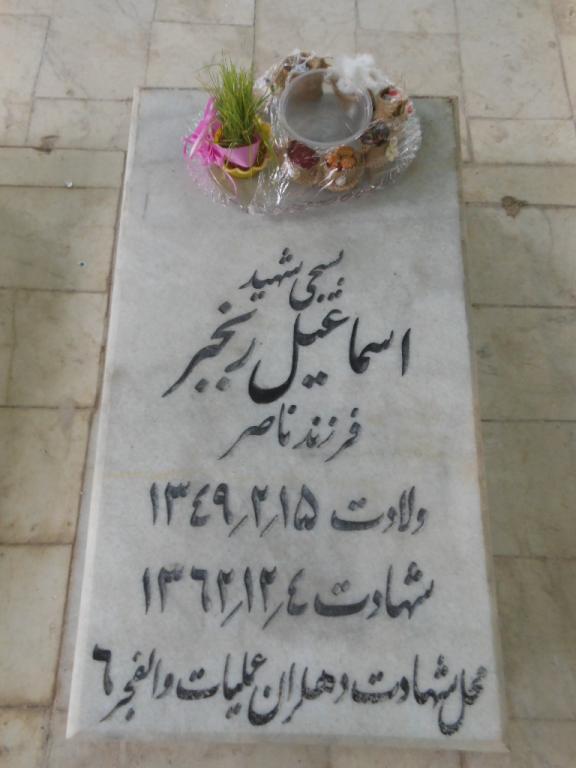 بسیجی شهید
اسماعیل رنجبر
فرزند ناصر
ولادت ۱۳۴۹٫۲٫۱۵
شهادت ۱۳۶۲٫۱۲٫۴
محل شهادت دهلران عملیات والفجر ۶